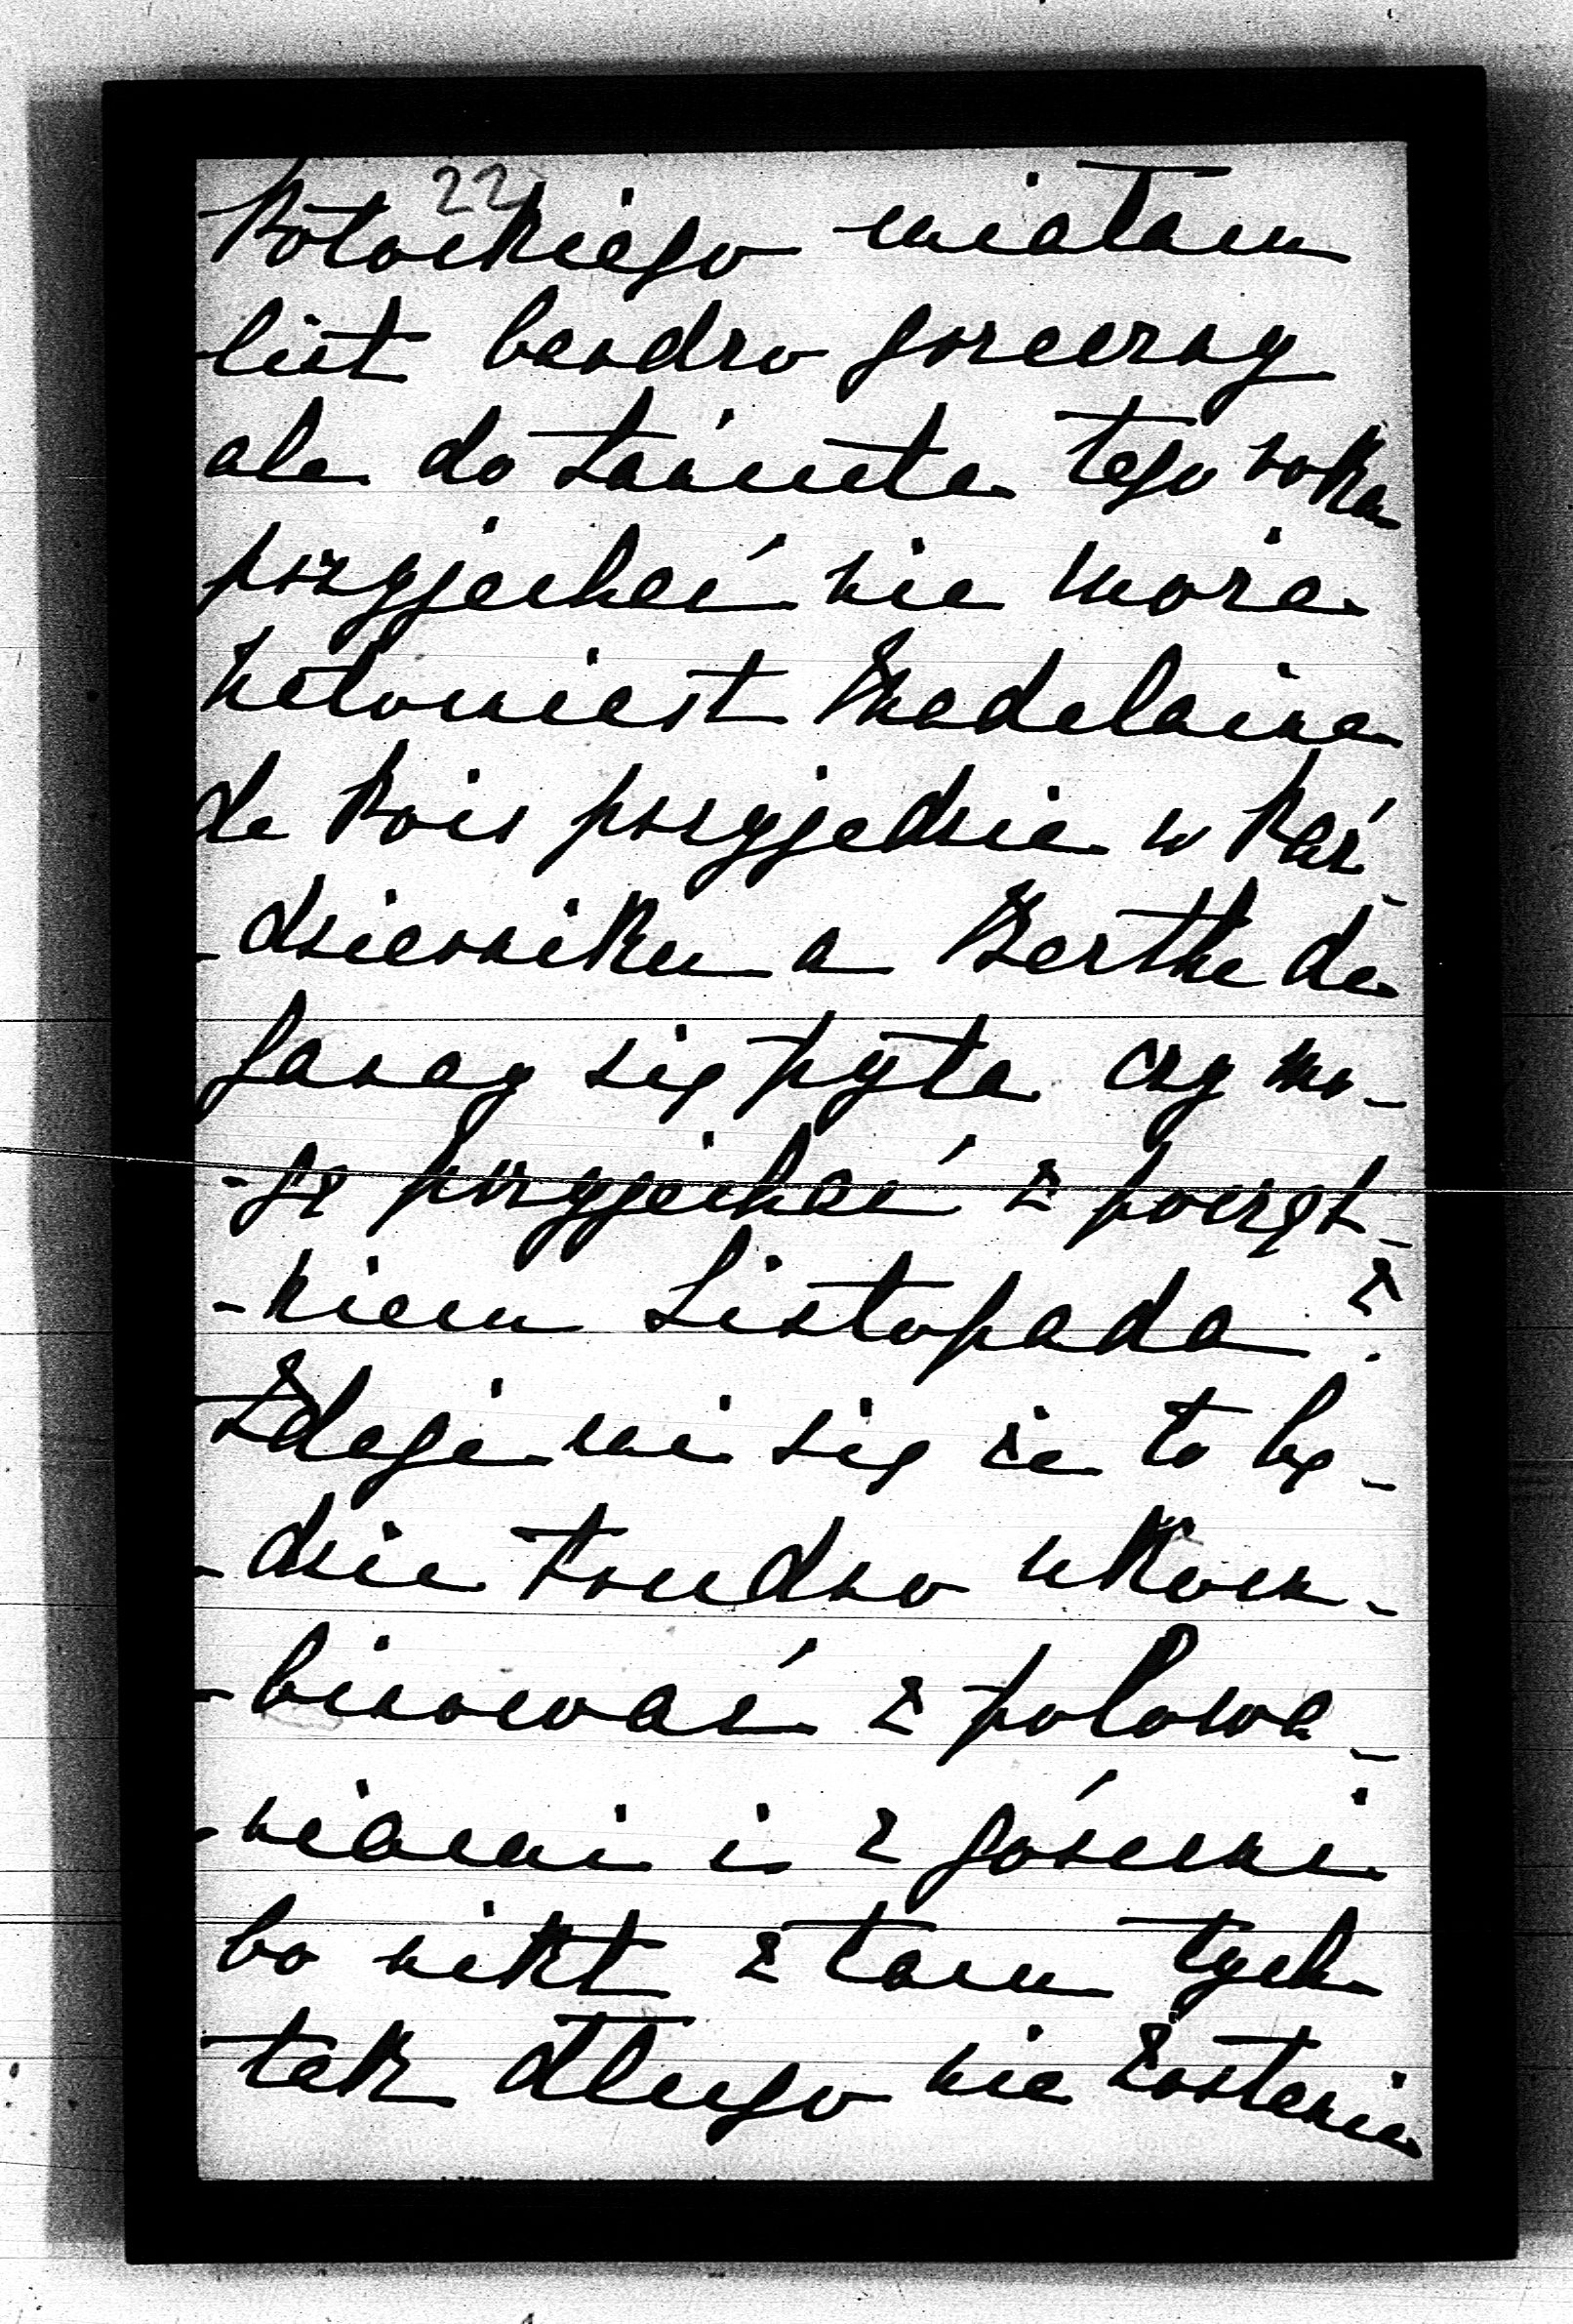 22
Potockiego miałam
list bardzo grzeczny
ale do Łańcuta tego roku
przyjechać nie może
natomiast Madelaine
de Bois przyjedzie w Paź-
-dzierniku a Berthe de
Ganay się pyta czy mo-
-gę przyjechać z począt-
-kiem Listopada?
Zdaje mi się że to bę-
-dzie trudno ukom-
-binować z polowa-
-niami i z gośćmi
bo nikt z tam tych
tak długo nie zostanie